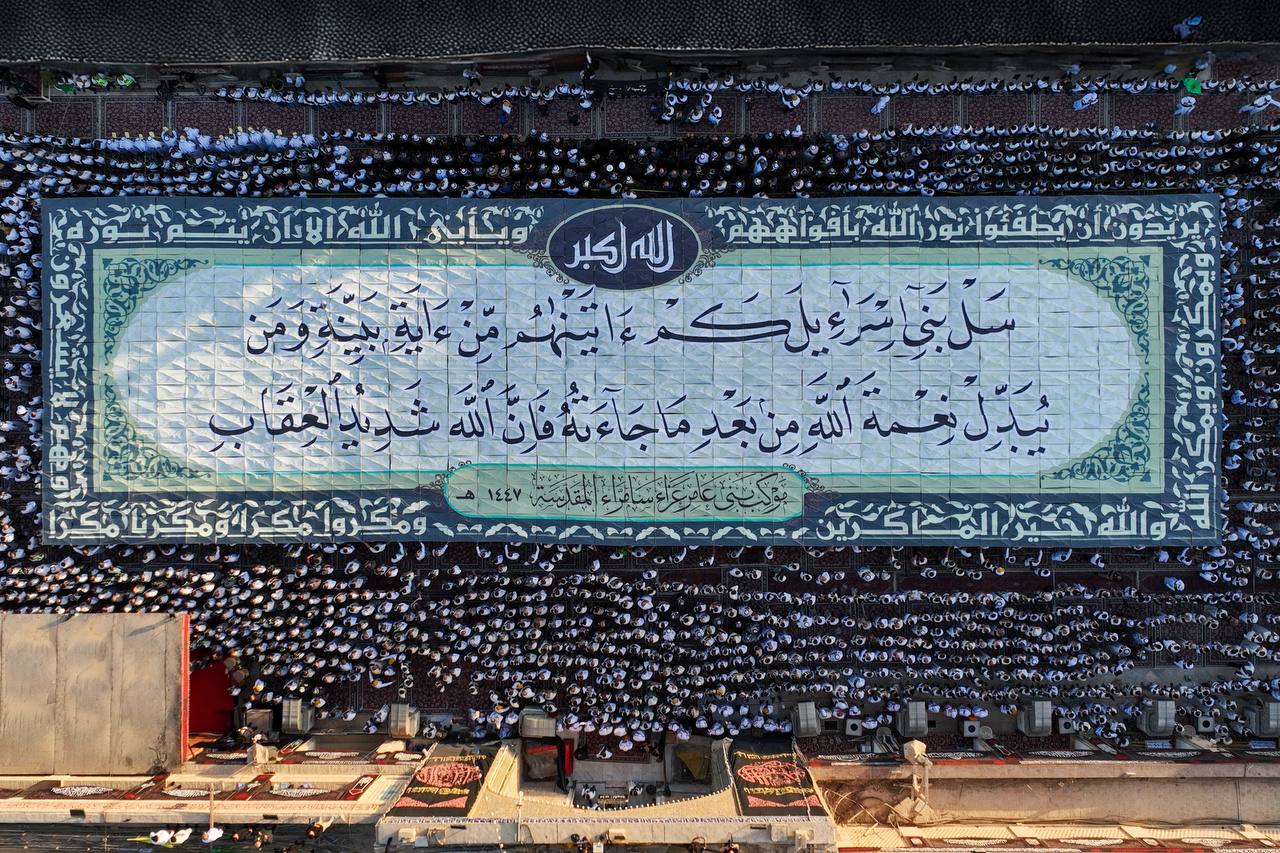 يريدون أن يطفئوا نور الله بأفواههم
ويأبى الله الا ان يتم نوره
الله اكبر
سَلْ بَنِىٓ إِسْرَٰٓءِيلَ كَمْ ءَاتَيْنَٰهُم مِّنْ ءَايَةٍۭ بَيِّنَةٍ وَمَن
يُبَدِّلْ نِعْمَةَ ٱللَّهِ مِنۢ بَعْدِ مَا جَآءَتْهُ فَإِنَّ ٱللَّهَ شَدِيدُ ٱلْعِقَابِ
موكب بني عامر عزاء سامراء المقدسة ١٤٤٧ هـ
ومكروا مكرا ومكرنا مكرا
والله خير الماكرين